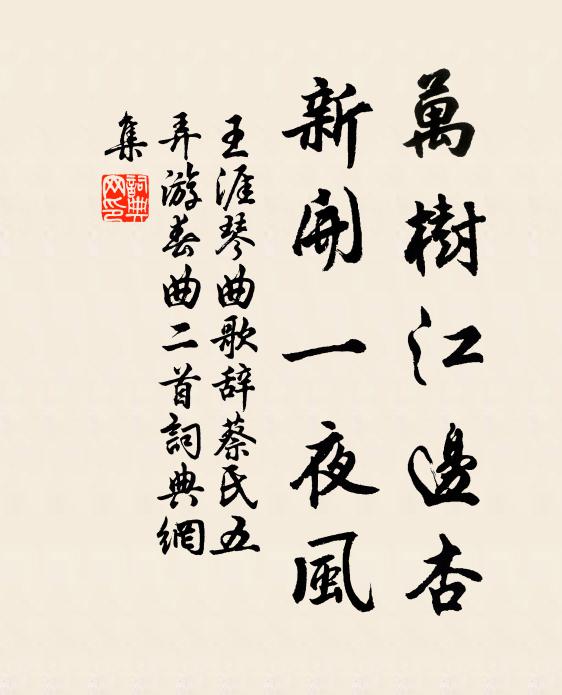 萬樹江邊杏
新開一夜風
王涯琴曲歌辞蔡民五
弄游春曲二首詞典網
集
詞典
网印